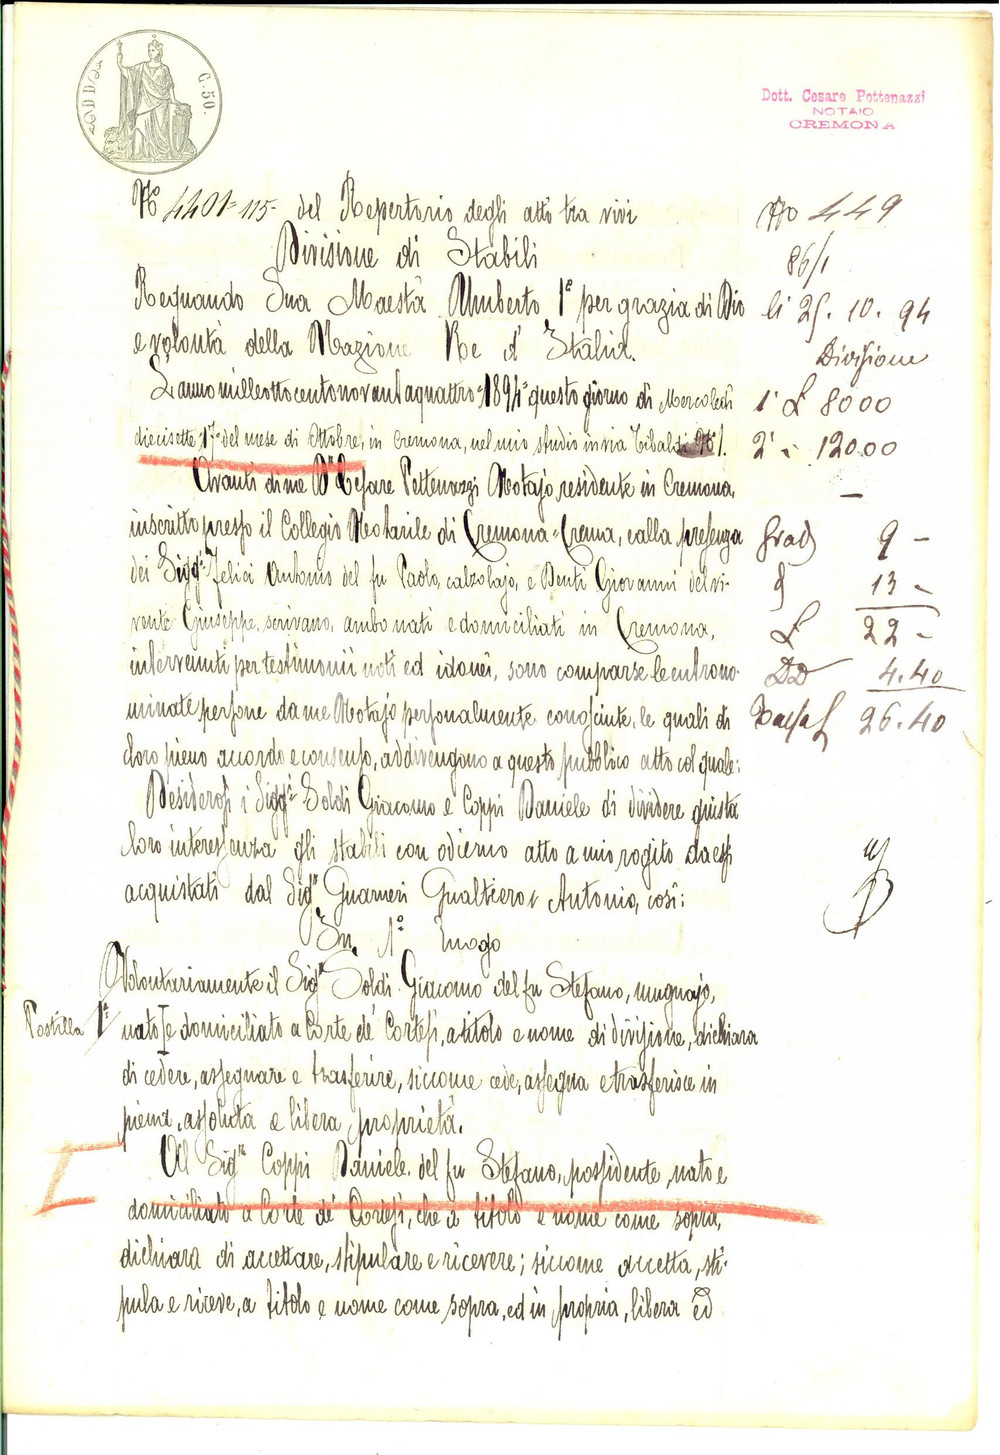 C. 50.
Dott. Cesare Pettenazzi
NOTAIO
CREMONA
N° 4401=115= del Repertorio degli atti tra vivi
Divisione di Stabili
Regnando Sua Maestà Umberto 1° per grazia di Dio
e volontà della Nazione Re d'Italia.
L'anno milleottocentonovantaquattro=1894=questo giorno di Mercoledì
diecisette=17=del mese di Ottobre, in Cremona, nel mio studio in via Tibaldi N° 1.
Avanti di me Dr Cesare Pettenazzi Notajo residente in Cremona,
inscritto presso il Collegio Notarile di Cremona=Crema, ed alla presenza
dei Sigg.i Felici Antonio del fu Paolo, calzolajo, e Denti Giovanni del vi-
vente Giuseppe, scrivano, ambo nati e domiciliati in Cremona,
intervenuti per testimonii noti ed idonei, sono comparse le entrono-
minate persone da me Notajo personalmente conosciute, le quali di
loro pieno accordo e consenso, addivengono a questo pubblico atto col quale:
Desiderosi i Sigg.i Soldi Giacomo e Coppi Daniele di dividere giusta
loro interessenza gli stabili con odierno atto a mio rogito da essi
acquistati dal Sig.r Guarneri Gualtiero Antonio, così:
In 1° Luogo
Volontariamente il Sig.r Soldi Giacomo del fu Stefano, mugnajo,
Postilla 1ª
nato e domiciliato a Corte de' Cortesi, a titolo e nome di divisione, dichiara
di cedere, assegnare e trasferire, siccome cede, assegna e trasferisce in
piena, assoluta e libera proprietà.
Al Sig.r Coppi Daniele del fu Stefano, possidente, nato e
domiciliato a Corte de' Cortesi, che a titolo e nome come sopra,
dichiara di accettare, stipulare e ricevere; siccome accetta, sti-
pula e riceve, a titolo e nome come sopra, ed in propria, libera ed
No 449
86/1
li 25. 10. 94
Divisione
1° £ 8000
2° " 12000
—
Grad 9 —
13 —
£ 22 —
DD 4.40
26.40